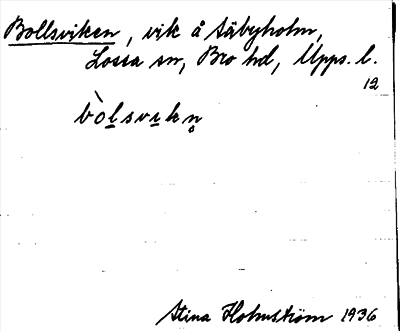 Bollsviken, vik å Säbyholm,
Låssa sn, Bro hd, Upps. l.
12
bòlsvikn̥
Stina Holmström 1936